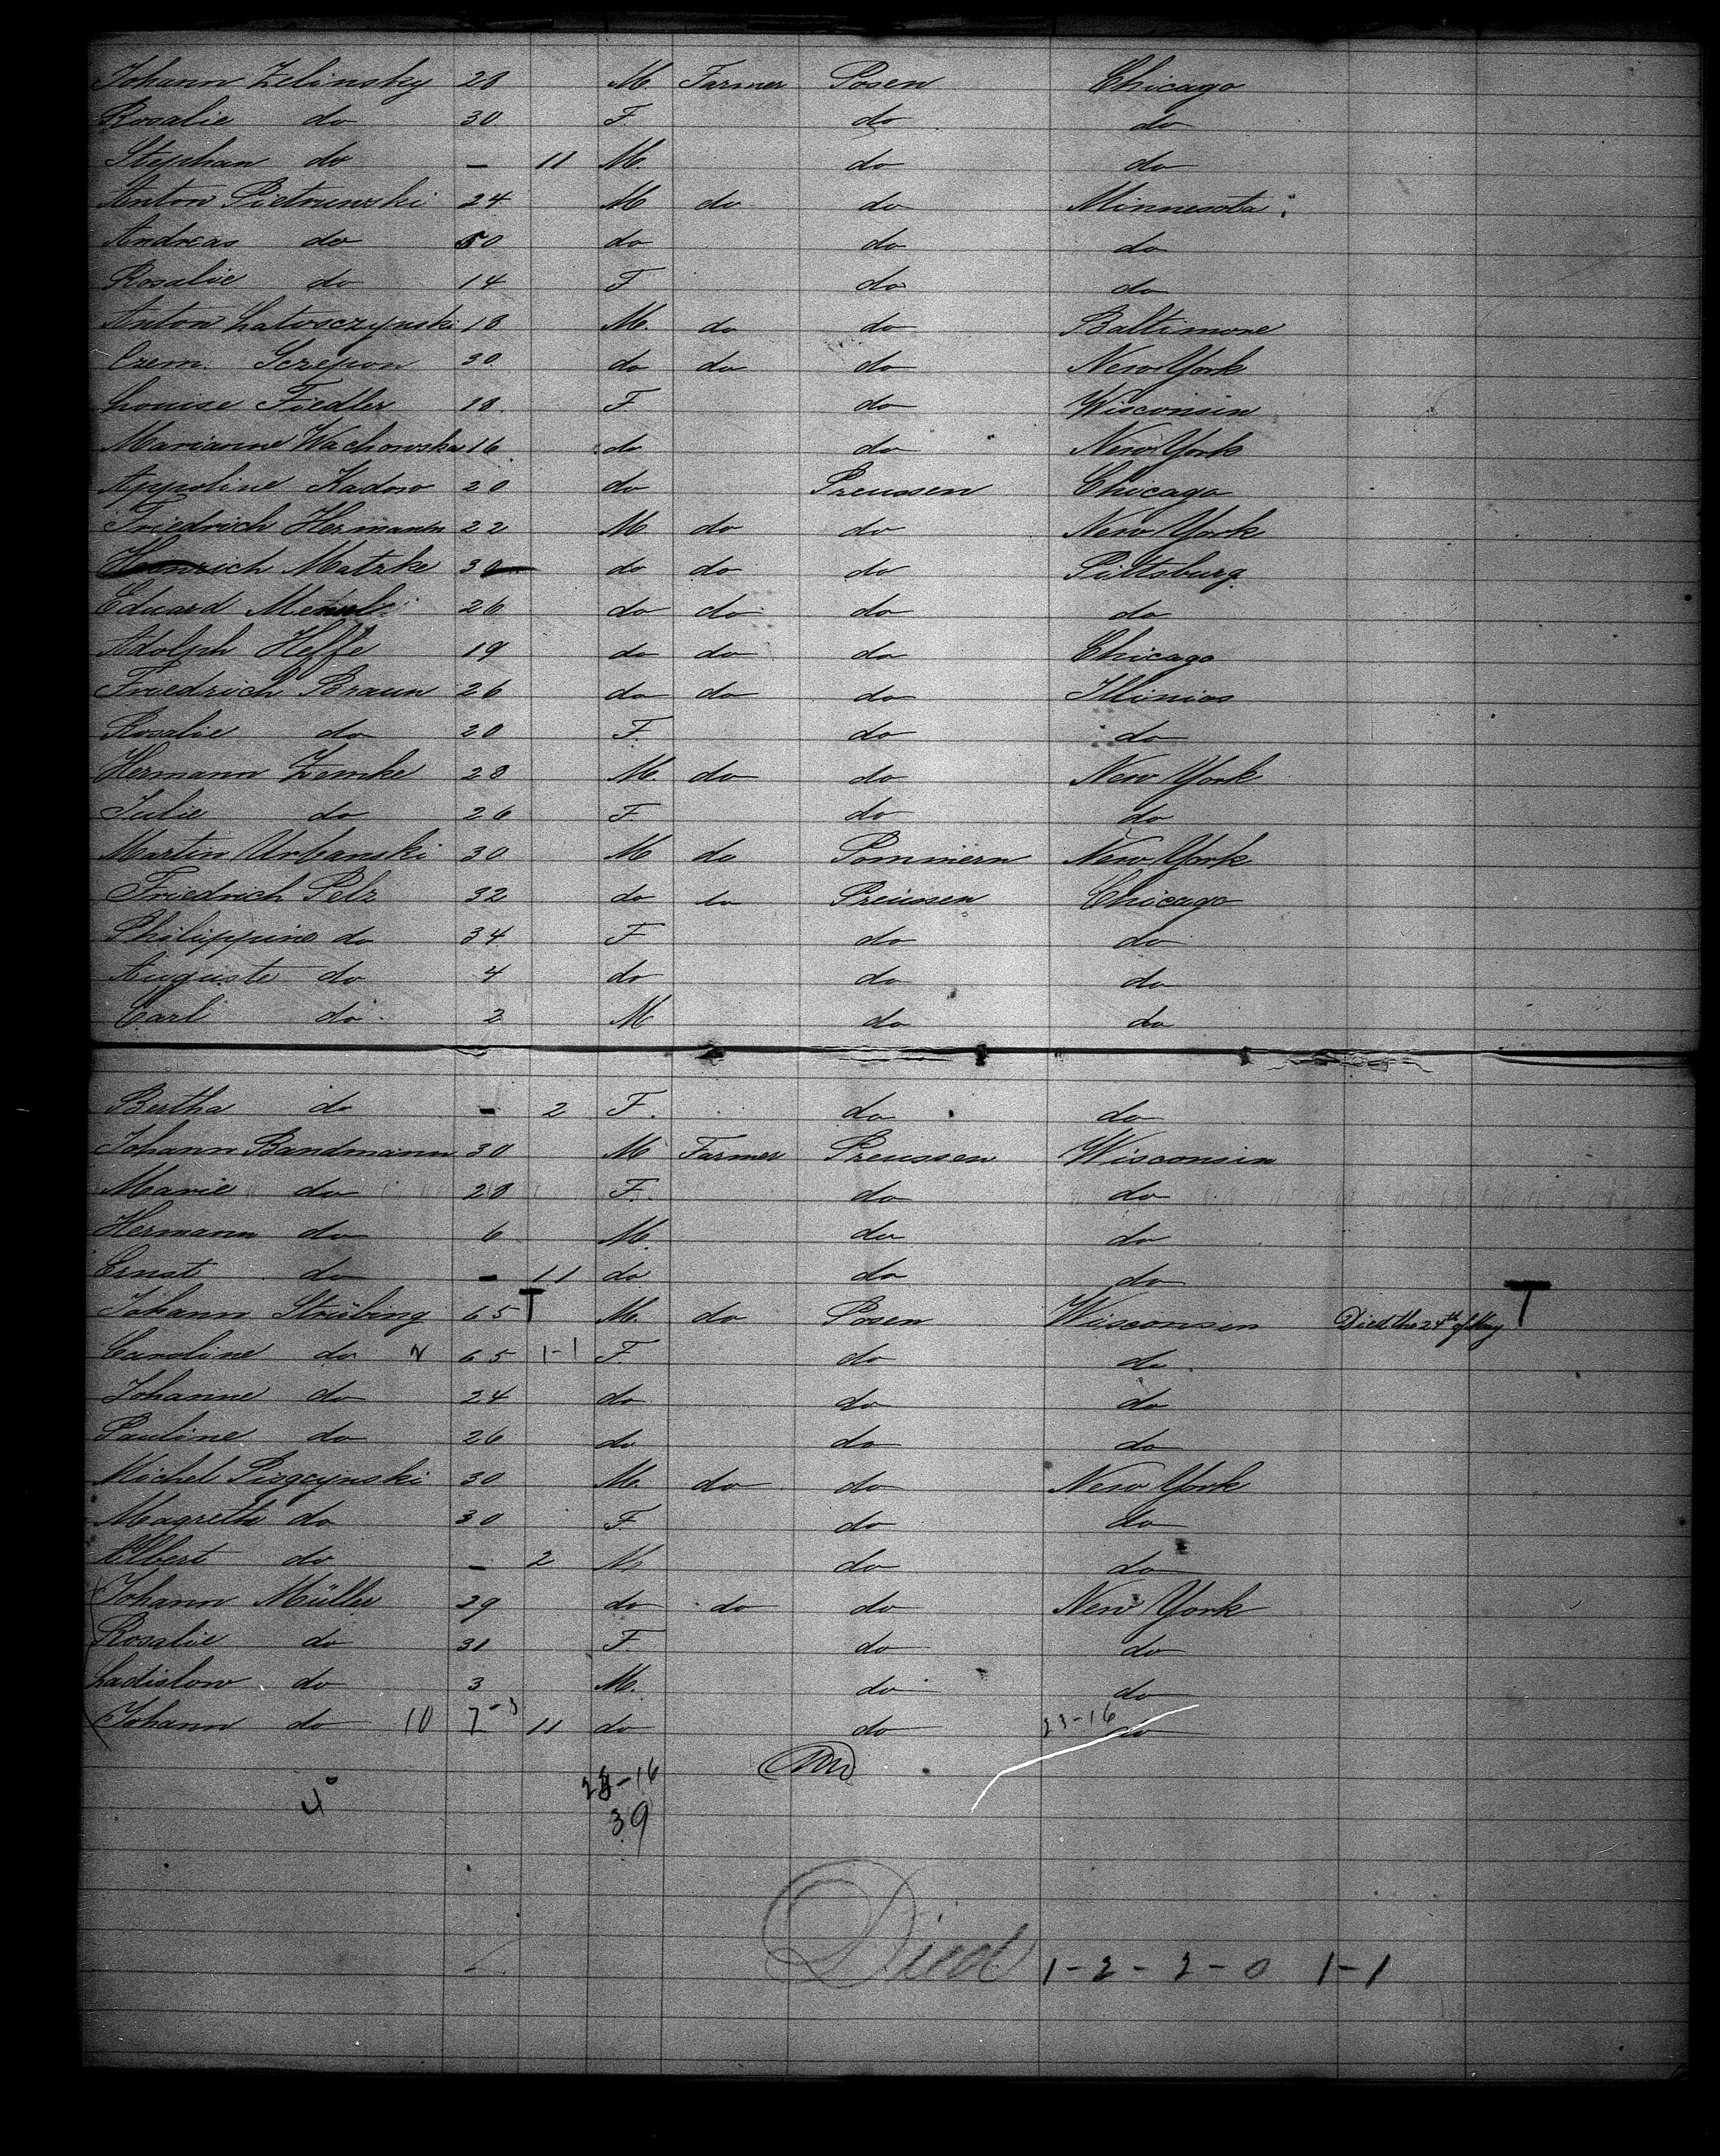 Johann Zelinsky 28 M. Farmer Posen Chicago
Rosalie do 30 F. do do
Stephan do - 11 M. do do
Anton Pietrunski 24 M do do Minnesota
Andreas do 50 do do do
Rosalie do 14 F do do
Anton Latosczynski 18 M. do do Baltimore
Czem. Sczepon 30 do do do New York
Louise Fiedler 18. F do Wisconsin
Marianne Wachowska 16 do do New York
Appoline Kadow 20 do Preussen Chicago
Friedrich Hermann 22 M. do do New York
Heinrich Matzke do do do Pittsburg
Eduard 26 do do do do
Adolph Heffe 19 do do do Chicago
Friedrich Braun 26 do do do Illinios
Rosalie do 20 F. do do
Hermann Zemke 28 M. do do New York
Julie do 26 F do do
Martin Urbanski 30 M do Pommern New York
Friedrich Pelz 32 do do Preussen Chicago
Philippine do 34 F do do
Auguste do 4 do do do
Carl do 2 M do do
Bertha do - 2 F. do do
Johann Bandmann 30 M Farmer Preussen Wisconsin
Marie do 28 F. do do
Hermann do 6 M. do do
Ernst do - 11 do do do
Johann Strübing 65 T M. do Posen Wisconsin Died the 24th of May T
Caroline do 65 1-1 F. do do
Johanne do 24 do do do
Pauline do 26 do do do
Michel Pisgcynski 30 M. do do New York
Magreth do 30 F. do do
Albert do - 2 M. do do
Johann Müller 29 do do do New York
Rosalie do 31 F. do do
Ladislow do 3 M. do do
Johann do 10 7-3 11 do do 23-16 do
-16
39
Died 1-2-2-0 1-1